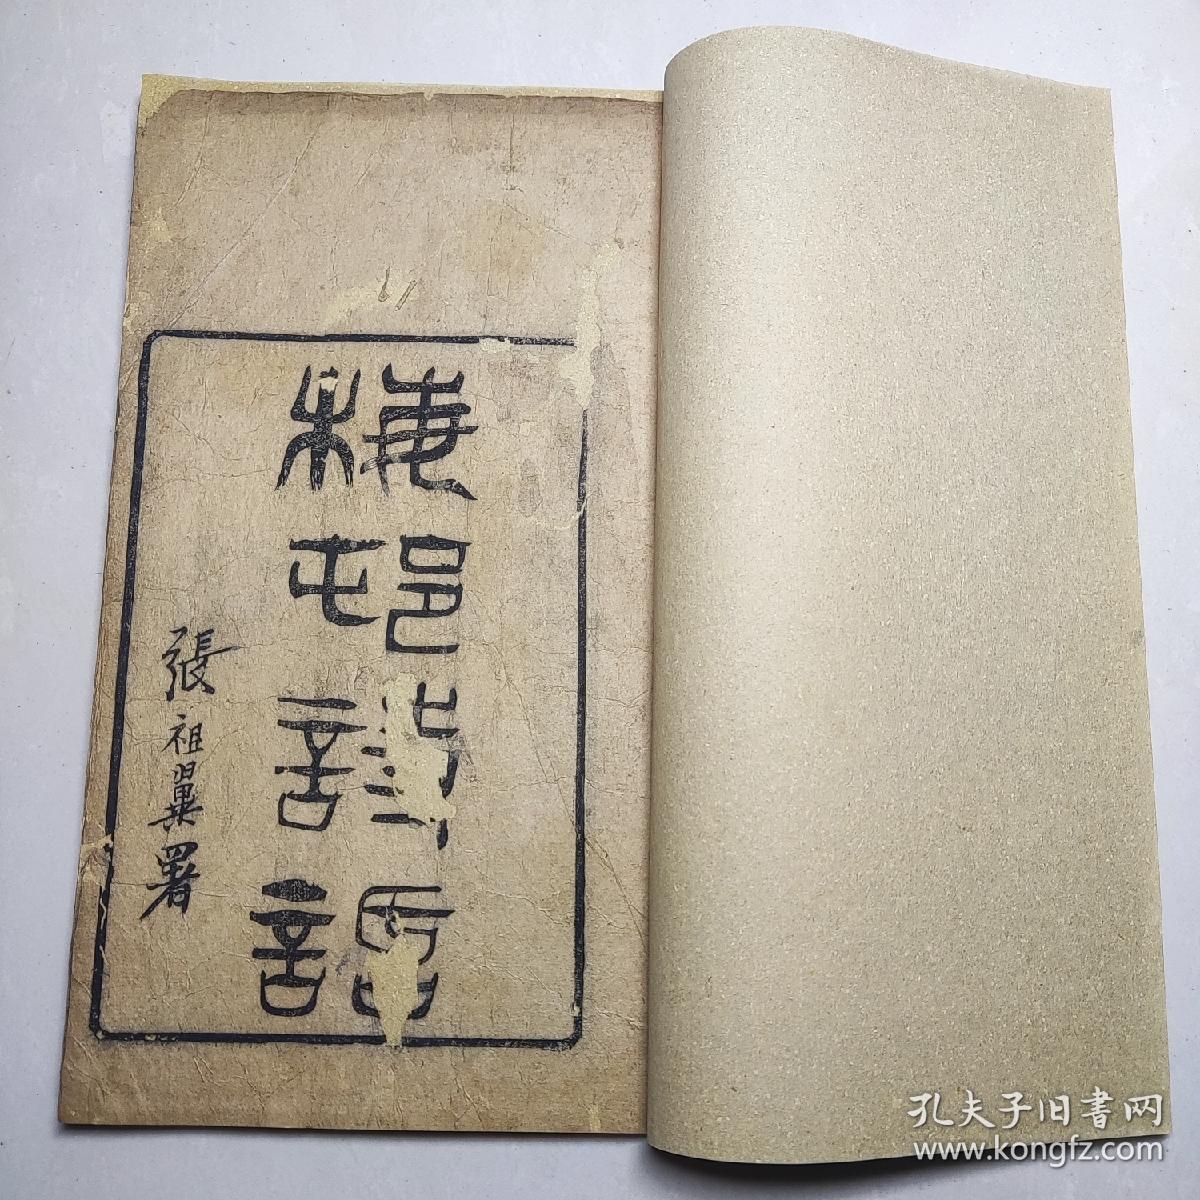 梅邨詩話
張祖翼署
孔夫子旧書网
www.kongfz.com